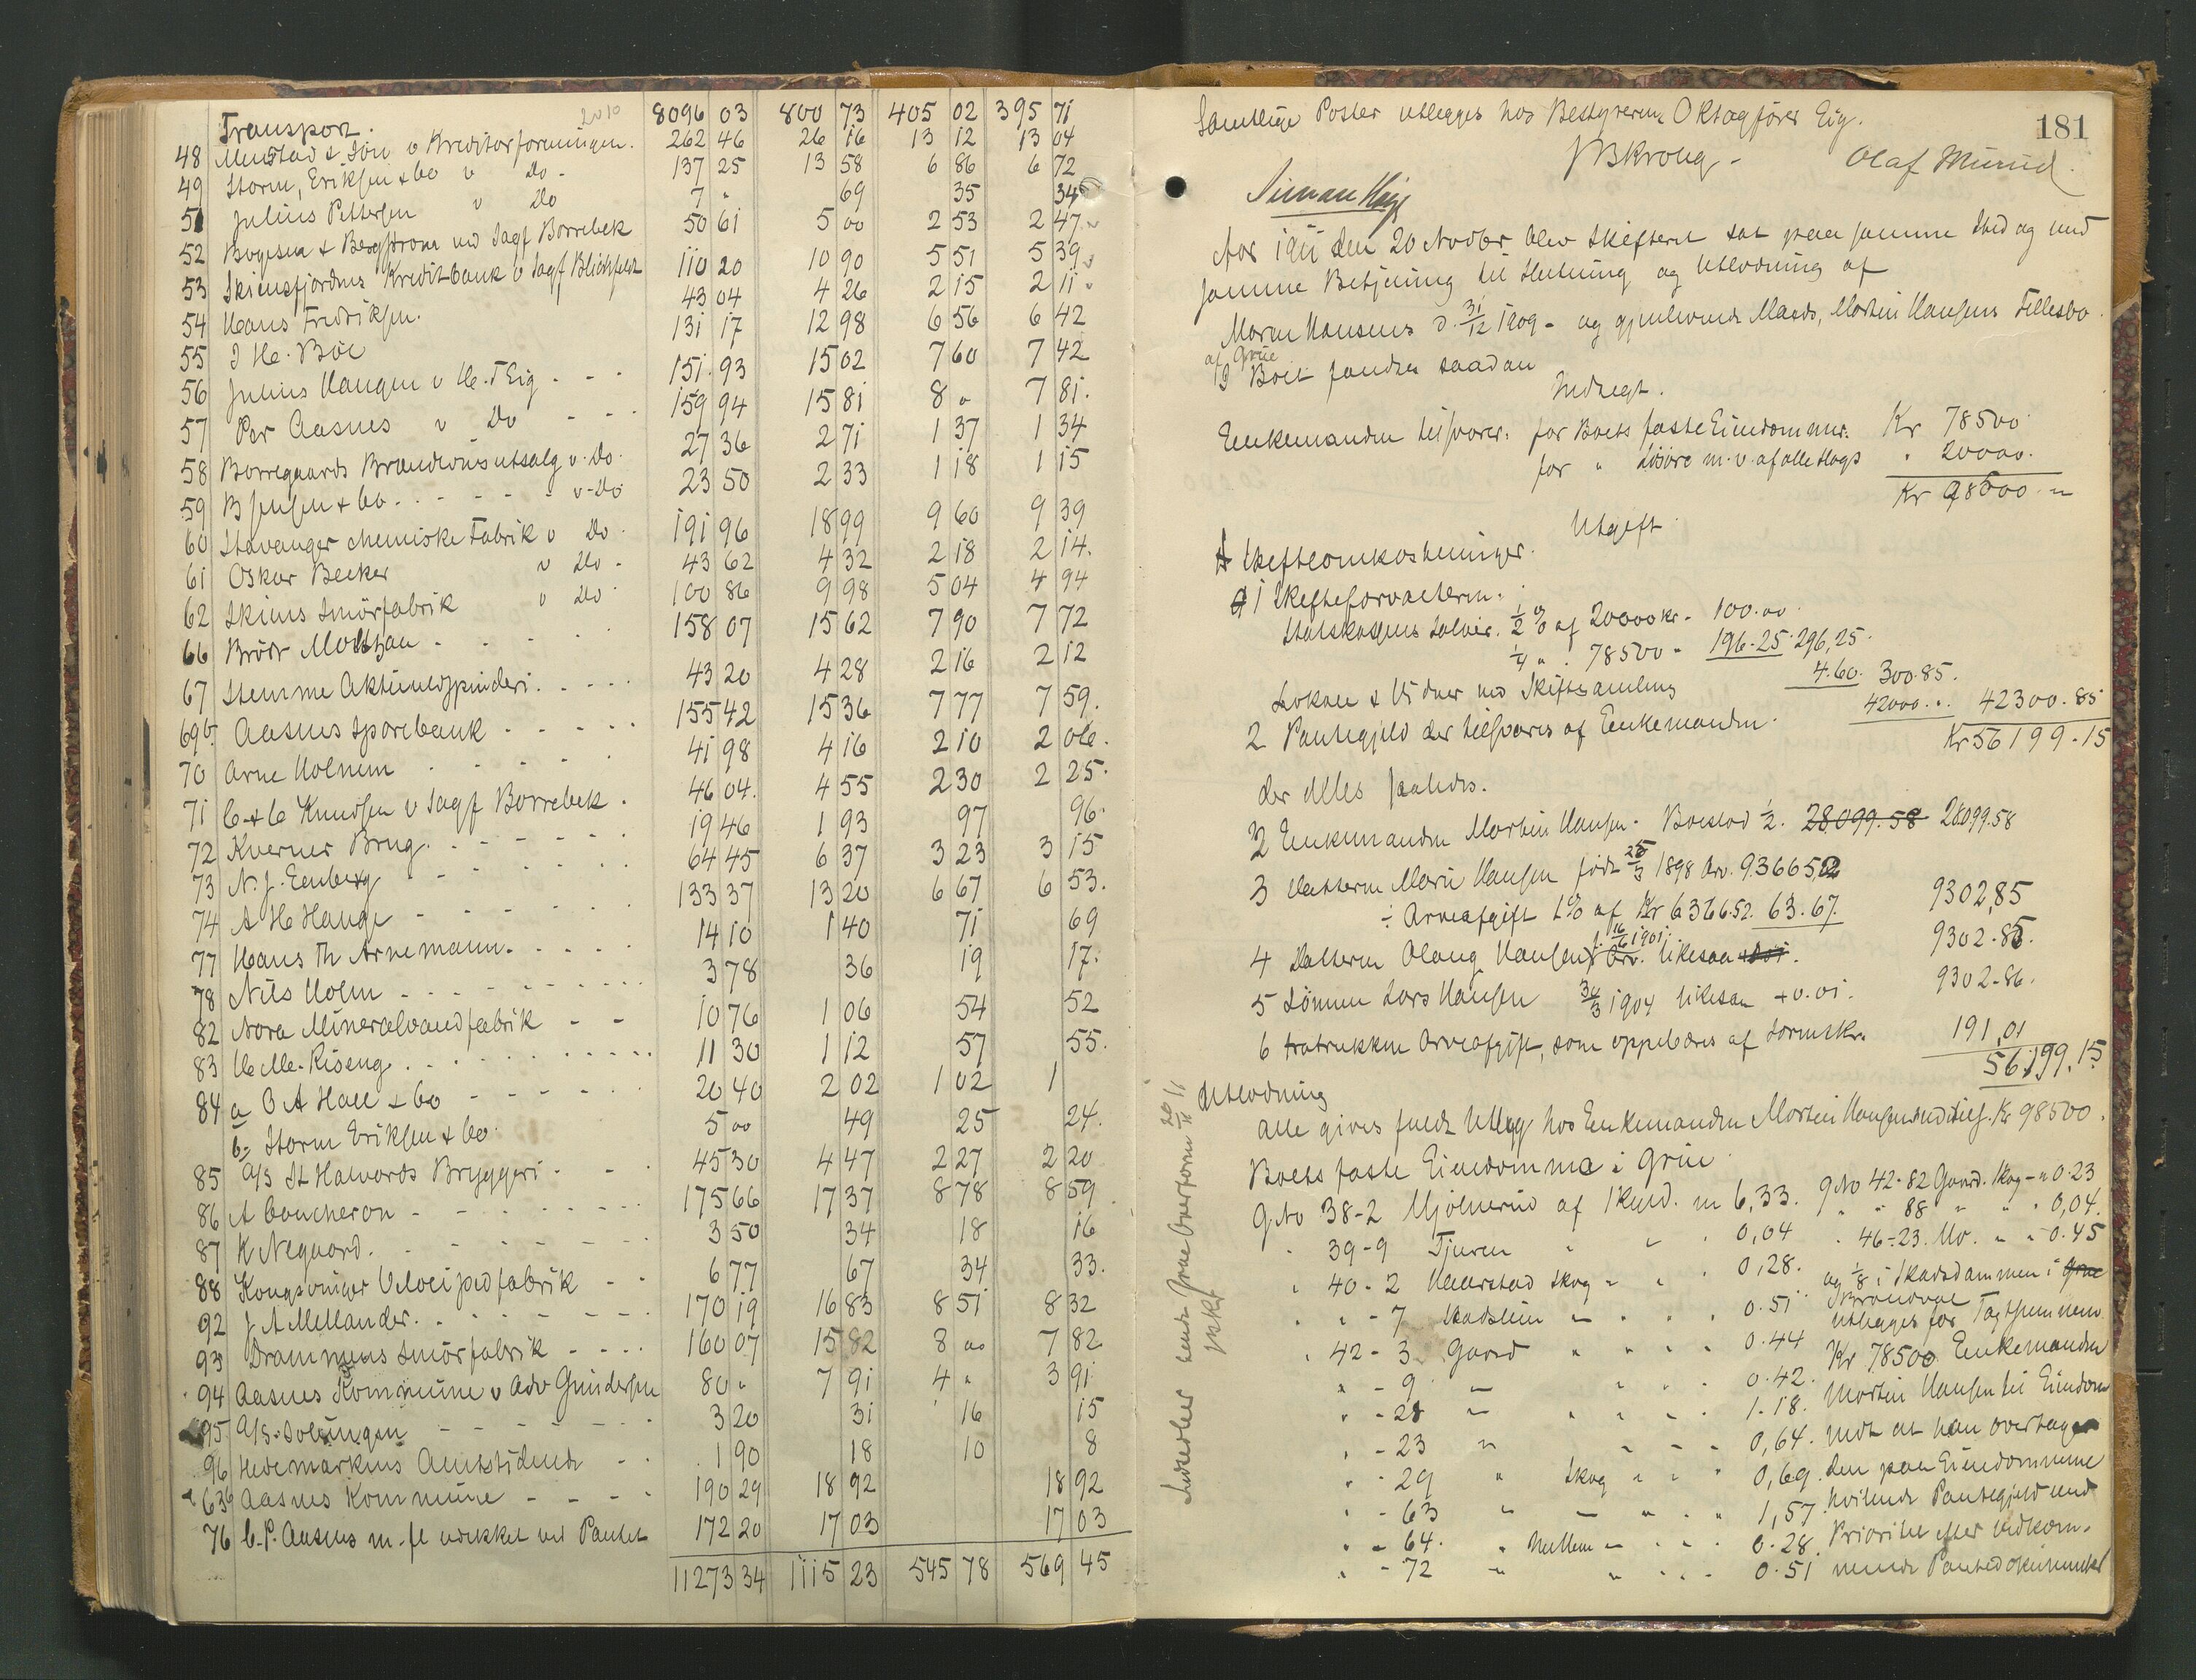 Transport. 2010 8096 03 800 73 405 02 395 71
48 Mustad & Søn v Kreditorforeningen. 262 46 26 16 13 12 13 04
49 Storm, Eriksen & Co v Do - 137 25 13 58 6 86 6 72
51 Julius Pettersen v Do 7 " 69 35 34
52 Bogesen & Bergstrøm ved Sagf Borrebek 50 61 5 00 2 53 2 47
53 Skiensfjordens Kreditbank v Sagf Blichfeldt 110 20 10 90 5 51 5 39
54 Hans Fredriksen. 43 04 4 26 2 15 2 11
55 I H. Böe 131 17 12 98 6 56 6 42
56 Julius Haugen v H. T Eig - - - 151.93 15 02 7 60 7 42
57 Per Aasnes v Do - - - 159 94 15 81 8 " 7 81.
58 Borregaards Brændevinsutsalg v. Do. 27 36 2 71 1 37 1 34
59 B Jensen & Co. - - - - - v. Do 23 50 2 33 1 18 1 15
60 Stavanger chemiske Fabrik v Do. 191 96 18 99 9 60 9 39
61 Oskar Becker v Do - 43 62 4 32 2 18 2 14.
62 Skiens Smörfabrik v Do 100 86 9 98 5 04 4 94
66 Brödr Molthzau - - - - 158 07 15 62 7 90 7 72
67 Stemme Aktieuldspinderi. - - - - 43 20 4 28 2 16 2 12
69b. Aasnes Sparebank - - - - - 155 42 15 36 7 77 7 59.
70 Arne Holmen - - - - - 41 98 4 16 2 10 2 06.
71 C. & C Knudsen v Sagf Borrebek. 46 04. 4 55 2 30 2 25.
72 Kværner Brug. - - - - - - 19 46 1 93 97 96.
73 N. J. Eenberg - - - - - - 64 45 6 37 3 23 3 15
74 A H Hauge - - - - - - 133 37 13 20 6 67 6 53.
77 Hans Th Arnemann. - - - - 14 10 1 40 71 69
78 Nils Holm - - - - - - - - - 3 78 36 19 17.
82 Nora Mineralvandfabrik - - 10 76 1 06 54 52
83 H. M. Riseng. - - - - - - - - 11 30 1 12 57 55.
84 a O A Hall & Co - - - - - - 20 40 2 02 1 02 1
b. Storm Eriksen & Co. 5 00 49 25 24.
85 A/S St Halvards Bryggeri - - . 45 30 4 47 2 27 2 20
86 A Coucheron - - - - - - - - 175 66 17 37 8 78 8 59
87 K Negaard. - - - - - - - 3 50 34 18 16
88 Kongsvinger Velocipedfabrik - - 6 77 67 34 33.
92 J A Mellander. - - - - - - - 170 19 16 83 8 51 8 32
93 Drammens Smörfabrik - - - - 160 07 15 82 8 00 7 82
94 Aasnes Kommune v Adv Gundersen 80 " 7 91 4 " 3 91
95 A/S. Solungen - - - - - - - 3 20 31 16 15
96 Hedemarkens Amtstidende - - 1 90 18 10 8
63b Aasnes Kommune - - - - 190 29 18 92 18 92
76 C. P. Aasnes m. fl udekket ved Pantet 172 20 17 03 17 03
11273 34 1115 23 545 78 569 45
181
Samtlige Poster utlægges hos Bestyreren Oktogfører Eig.
J B Kroug - Olaf Mürud.
Aar 1911 den 20 Novbr blev Skifteret sat paa samme Sted og med
samme Betjening til Slutning og Utlodning af
Maren Hansens d. 31/12 1909 - og gjenlevende Mands, Martin Hansens Fellesbo
af Grue
D Boet fandtes saadan
Indtegt.
Enkemanden tilsvarer. for Boets faste Eiendommer. Kr 78500
for " Lösöre m. v. af alle Slags " 20000.
Kr 98500. "
Utgift
A Skifteomkostninger.
1 Skifteforvalteren.
Statskassens Salær. 1/2 % af 20000 kr - 100.00
1/4 " . 78500 " 196.25 296,25.
Lokale & Vidner ved Skiftesamling 4.60. 300.85.
2 Pantegjeld der tilsvares af Enkemanden. 42000 .. 42300.85
Kr 56199.15
der deles saaledes.
2 Enkemanden Martin Hansen. Boeslod 1/2. 28099.58 28099.58
3 Datteren Marie Hansen född 25/3 1898 Arv. 9366.52
÷ Arveafgift 1 % af Kr 6366.52. 63.67. 9302,85
4 Datteren Olaug Hansen f. 16/6 1901. Arv. likesaa 9302.85.
5 Sönnen Lars Hansen 30/3 1904 likesaa + 0.01. 9302.86.
6 fratrukken Arveafgift, som oppebæres af Sorenskr. 191,01
56199.15
Utlodning
Alle gives fuldt Utlæg hos Enkemanden Martin Hansen Kr 98500.
Boets faste Eiendomme i Grue
G. No 38-2 Mjölnerud af Skyld. m 6,33. G No 42-82 Gaard. Skog - " 0.23
" " 88 " " " 0,04.
" 39-9 Tjuren " " " 0,04 " 46-23. Mo. " " 0.45
" 40-2 Haarstad Skog " " " 0,28. og 1/8 i Skasdammen i Grue
" " - 7 " " " 0.51 Brandval
utlægges for Takstsummen
" 42-3 Gaard " " " " 0.44 Kr 78500 Enkemanden
" " - 9 " " " " 0.42. Martin Hansen til Eiendom
" " - 28 " " " " 1.18.
" " - 23 " " " " 0,64. mot at han overtager
" " - 29 " Skog " " " 0,69. den paa Eiendommene
" " - 63 " " " " 1,57. hvilende Pantegjeld med
" " - 64. " Mellem " " " 0.28. Prioritet efter vedkom-
" " - 72 " " " " 0.51 mende Pantedokumenter